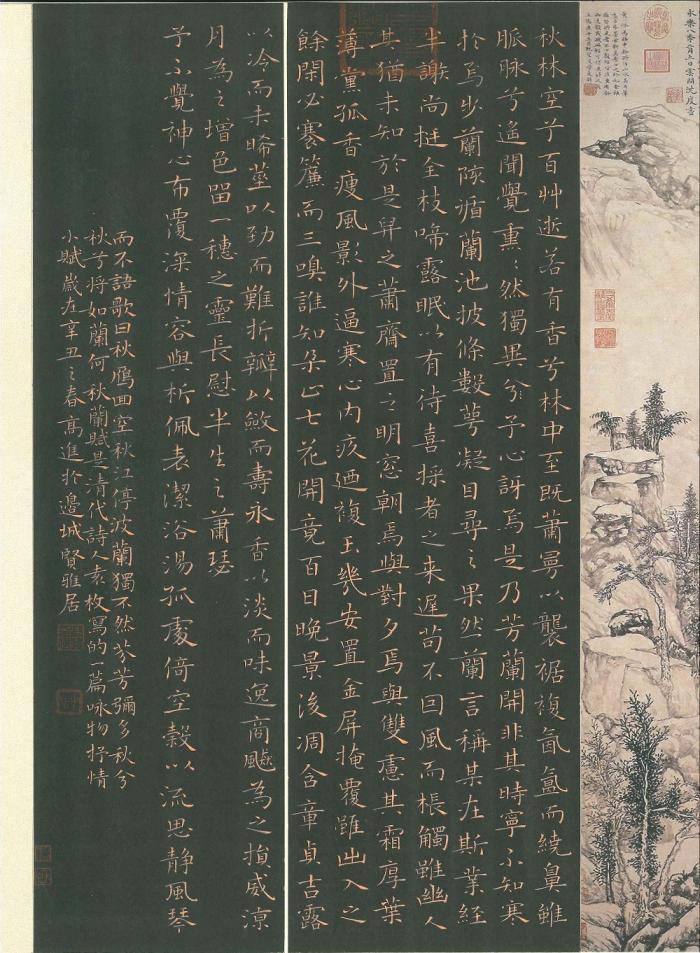 永樂八季六月五日雲間沈度書
秋林空兮百艸逝若有香兮林中至既蕭曼以襲裾複氤氳而繞鼻雖
脈脉兮遙聞覺熏〻然獨異兮予心訝焉是乃芳蘭開非其時寧不知寒
於焉步蘭陔循蘭池披條數萼凝目尋之果然蘭言稱某在斯業經
半謝尚挺全枝啼露眠以有待喜採者之来遲苟不因風而棖觸雖幽人
其猶未知於是舁之蕭齋置之明窓朝焉與對夕焉與雙慮其霜厚葉
薄黨孤香瘦風影外逼寒心內疚廼複玉幾安置金屏掩覆雖出入之
餘閑必褰簾而三嗅誰知朵止七花開竟百日晚景後凋含章貞吉露
以冷而未晞莖以勁而難折瓣以斂而壽永香以淡而味逸商飈為之損威涼
月為之增色留一穗之靈長慰半生之蕭瑟
予不覺神心布覆深情容與析佩表潔浴湯孤處倚空穀以流思靜風琴
而不語歌曰秋鴈回空秋江停波蘭獨不然芬芳彌多秋兮
秋兮将如蘭何 秋蘭賦是清代詩人袁枚寫的一篇咏物抒情
小賦歲在辛丑之春高進於邊城賢雅居